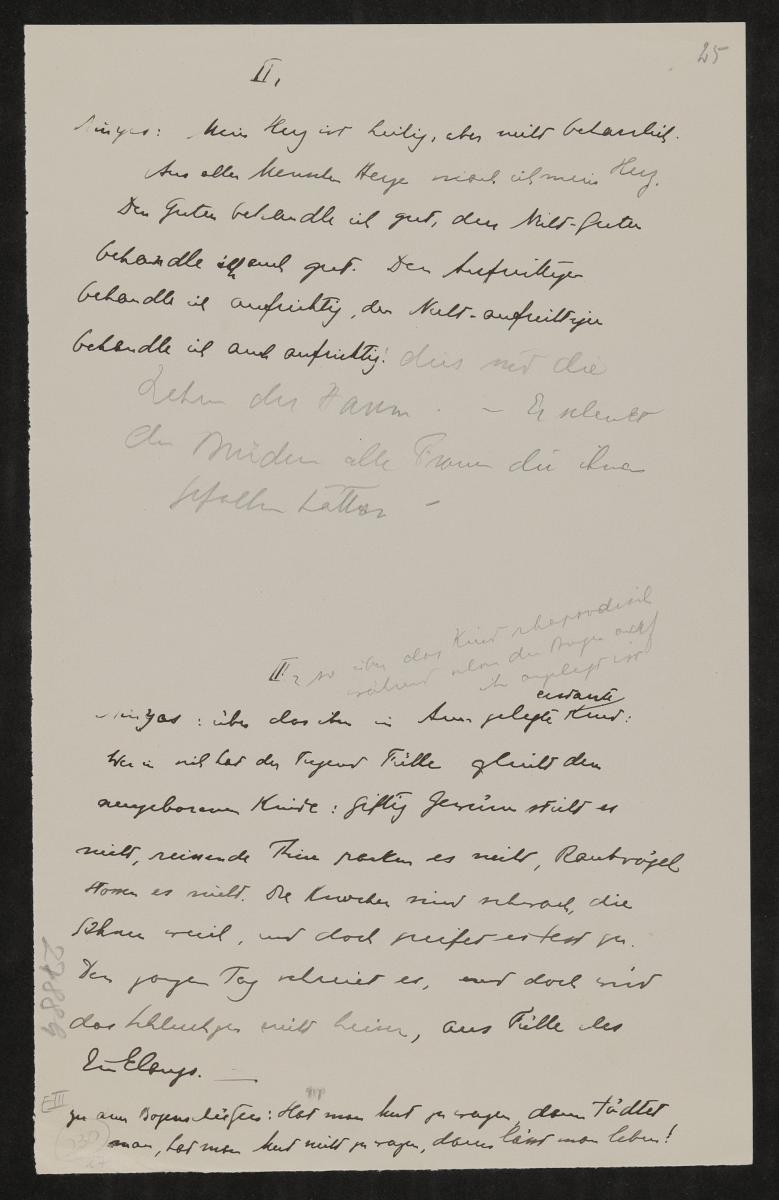 25
II,
Mein Herz ist heilig, aber nicht beharrlich.
Aus aller Menschen Herze mach ich mein Herz.
Den Guten behandle ich gut, den Nicht-Guten
behandle ich auch gut. Den Aufrichtigen
behandle ich aufrichtig, den Nicht-aufrichtigen
behandle ich auch aufrichtig! dies sind die
Lehren des – Er schenkt
den Müden alle Frauen die ihnen
gefallen hätten –
so über das Kind rhapsodisch
während schon der Bogen auf
ihn angelegt ist
II
erdachte
: über das ihm in Arm gelegte Kind:
Wer in sich hat der Tugend Fülle gleicht dem
neugeborenen Kinde: giftig Gewürm sticht es
nicht, reissende Thiere packen es nicht, Raubvögel
stossen es nicht. Die Knochen sind schwach, die
Sehnen weich, und doch greifet es fest zu.
Den ganzen Tag schreiet es, und doch wird
das nicht heiser, aus Fülle des
Einklangs. —
zu am Bogenschiessen: Hat man Mut zu wagen, dann tödtet
man, hat man Mut nicht zu wagen, dann lässt man leben!
EIII